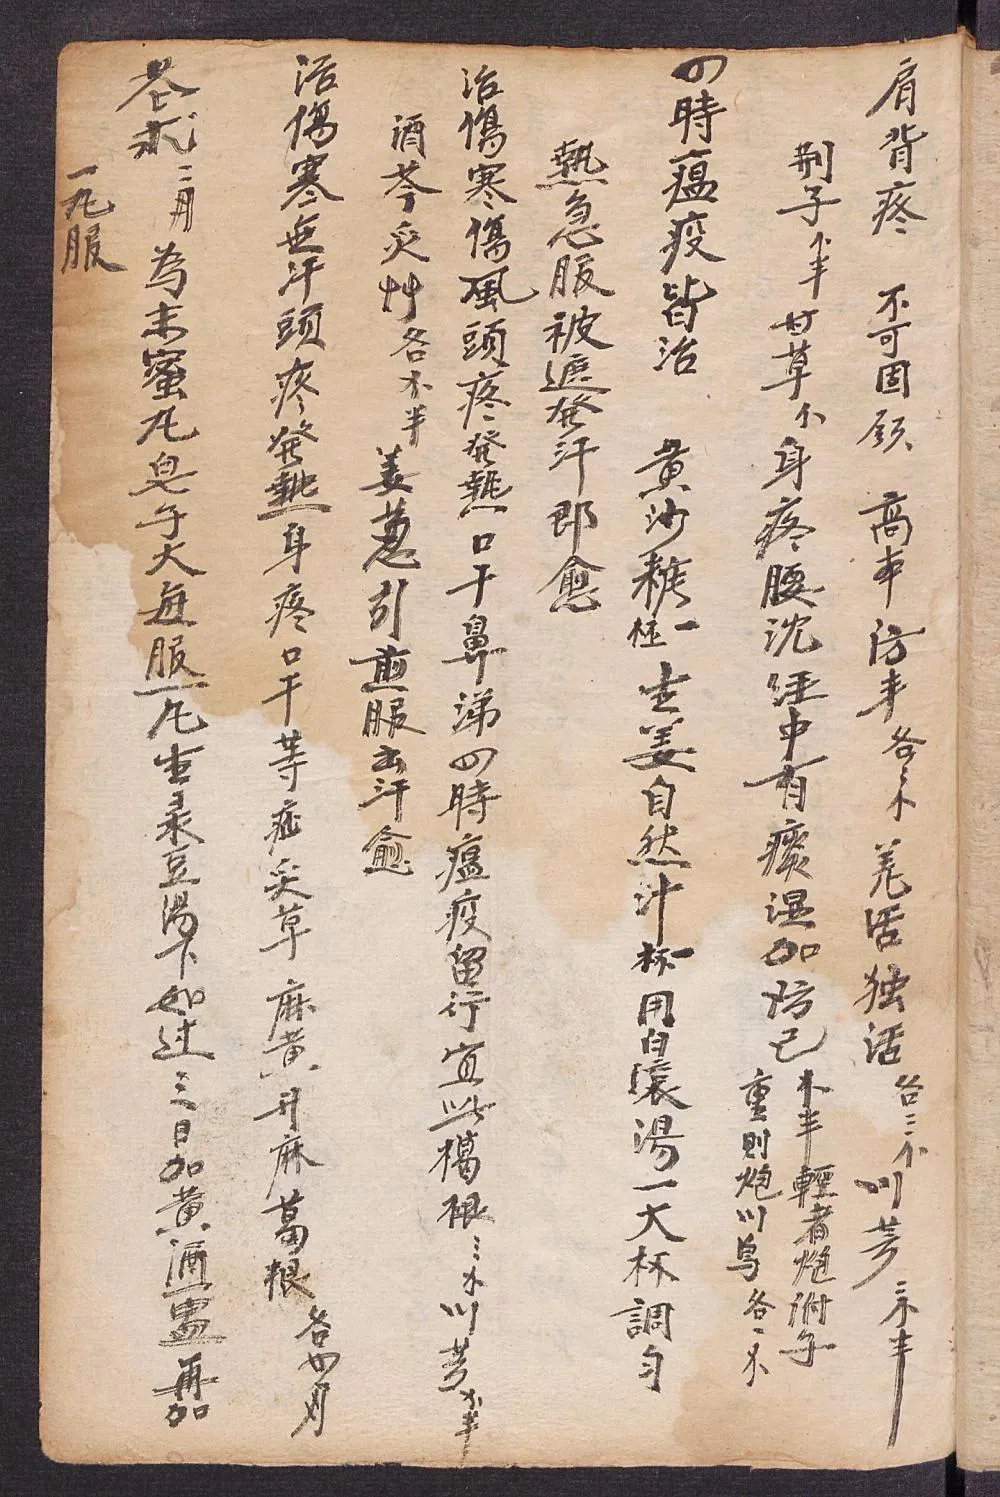 肩背疼 不可回顾 高本 防丰各三个 羌活 独活各三个 川芎三个半
荆子个半 甘草个 身疼腰沈 经中有痰湿加防己个半 輕者炮附子
重則炮川烏各一个
四時瘟疫皆治 黄沙糖一杯 生姜自然汁一杯 用白滚湯一大杯調匀
熱急服被遮發汗即愈
治傷寒傷風頭疼發熱口干鼻涕四時瘟疫留行宜此 葛根三个 川芎个半
酒芩 炙艸各个半 姜葱引煎服出汗愈
治傷寒無汗頭疼發熱身疼口干等症 炙草 麻黄 升麻 葛根各四月
二月 為末蜜丸皂子大每服一丸生录豆湯下如过三日加黄酒一盅再加
一丸服